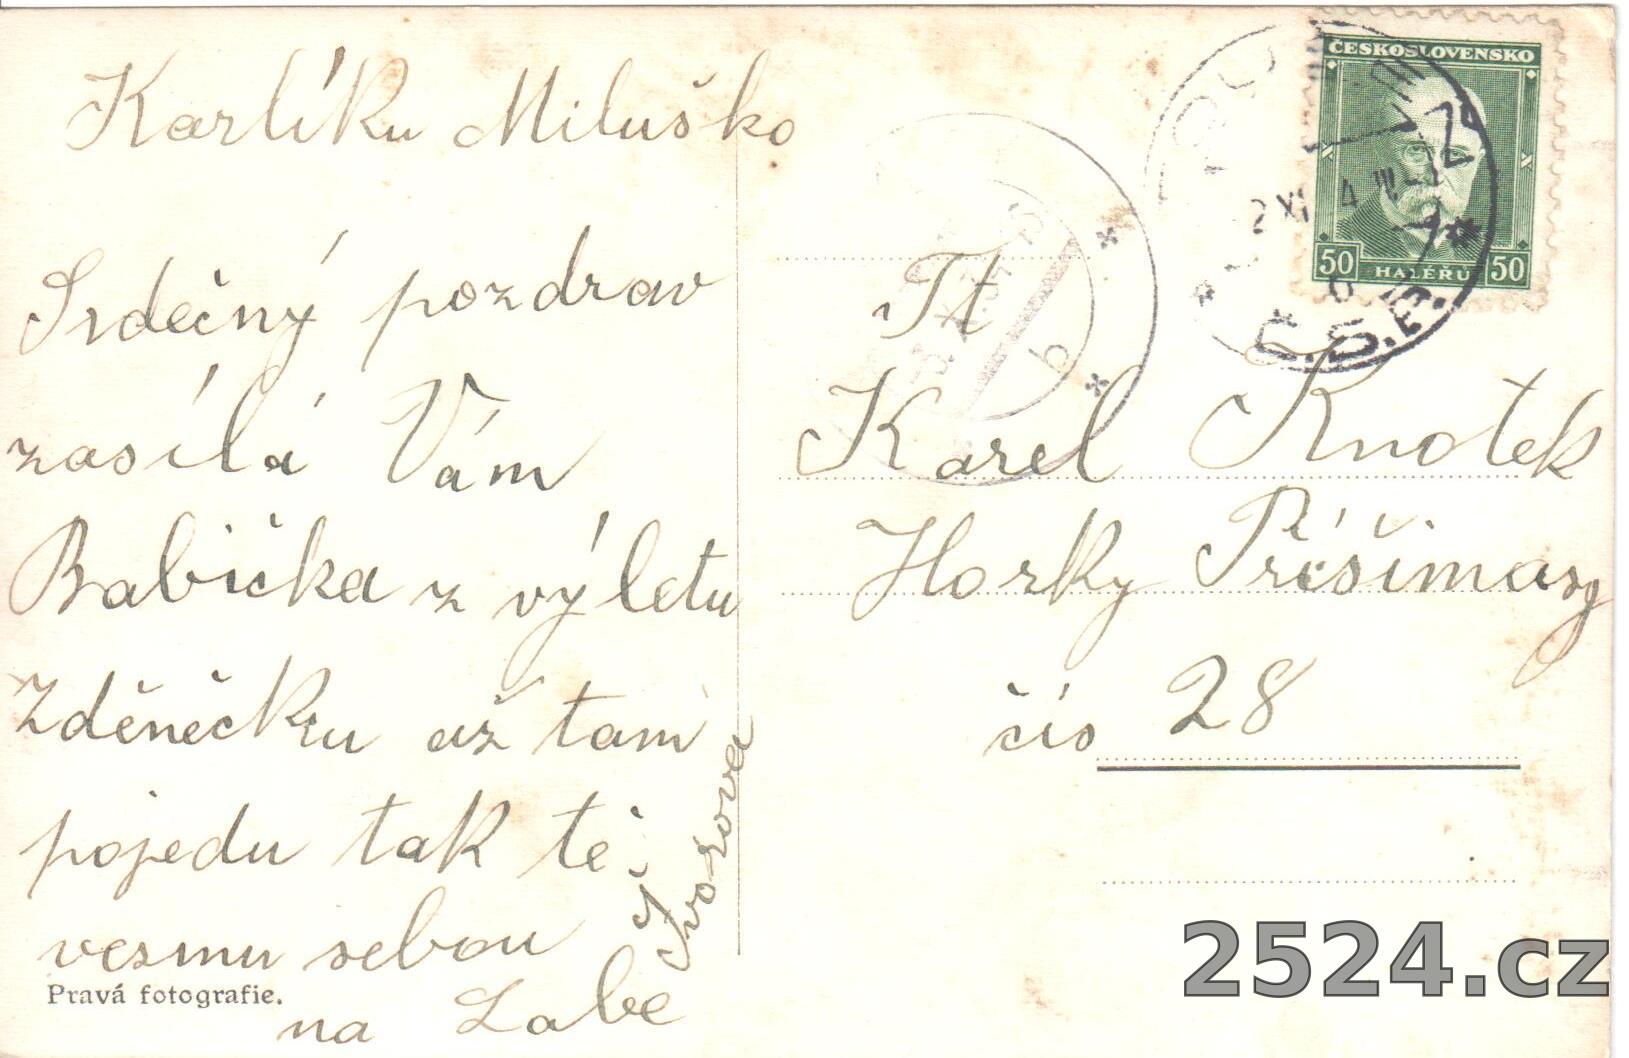 Karlíku Miluško
Srdečný pozdrav
zasílá Vám
Babička z výletu
Zděnečku až tam
pojedu tak tě
vezmu sebou
na Labe
Pravá fotografie.
ČESKOSLOVENSKO
50 HALÉŘŮ 50
Č.S.R.
b
Tt
Karel Knotek
Horky Příšimasy
čís 28
2524.cz